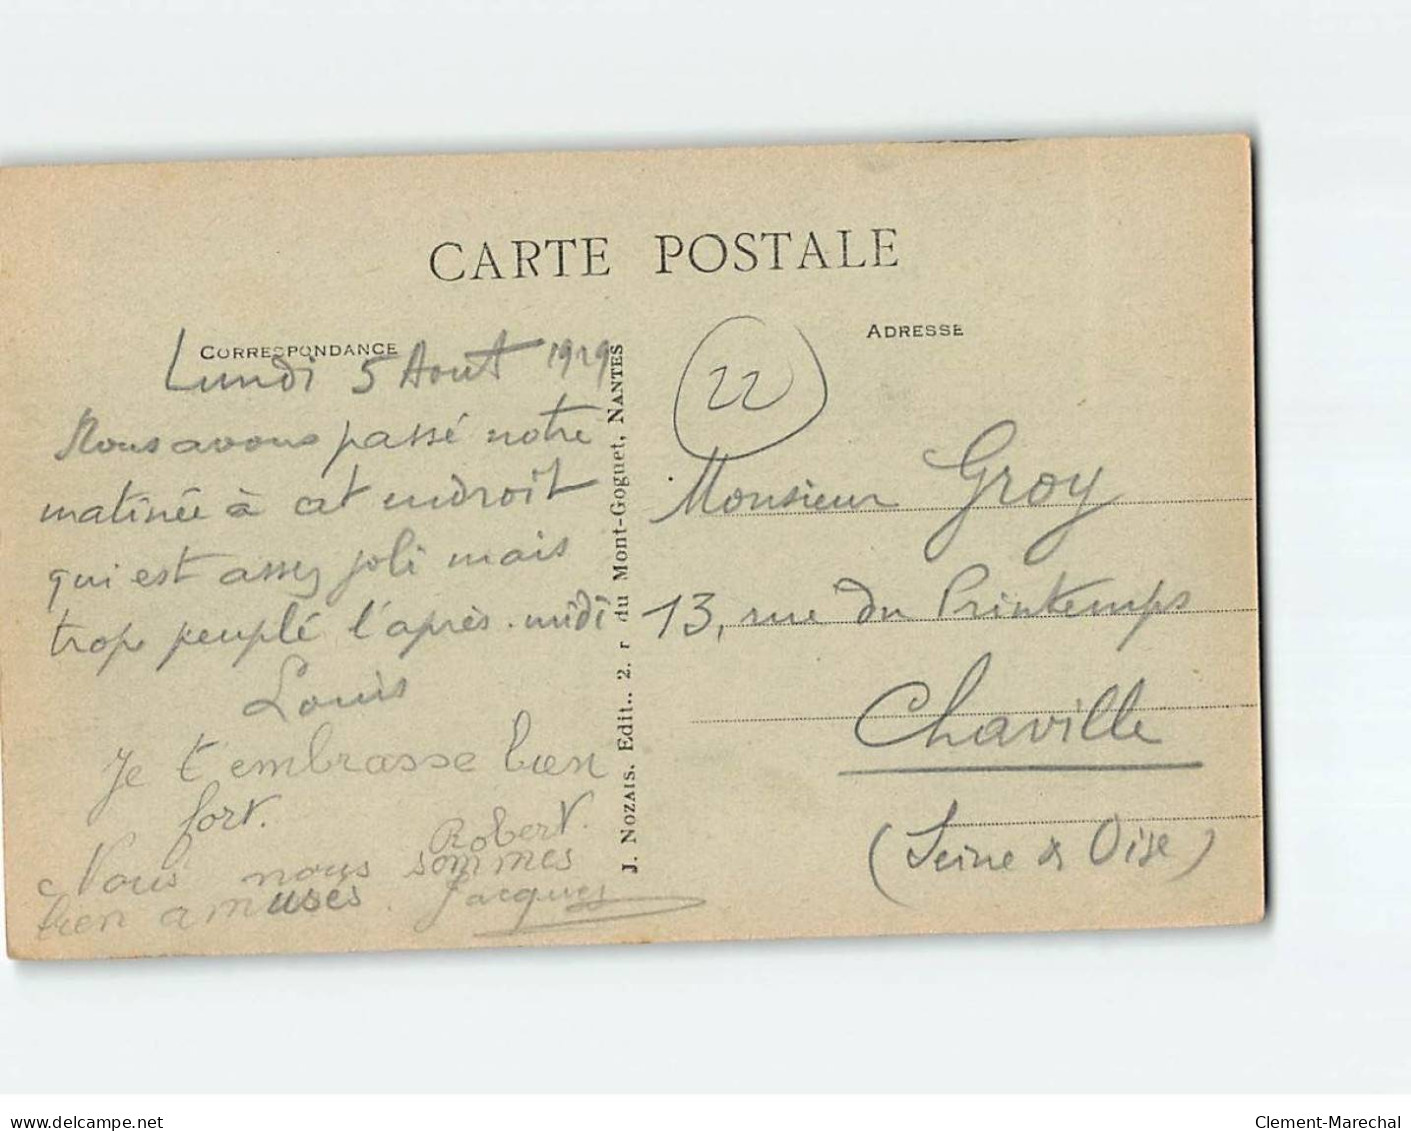 CARTE POSTALE
CORRESPONDANCE
ADRESSE
Lundi 5 Aout 1929
Nous avons passé notre
matinée à cet endroit
qui est assez joli mais
trop peuplé l'après-midi
Louis
Je t'embrasse bien
fort.
Robert.
Nous nous sommes
bien amusés. Jacques
J. NOZAIS. Edit.. 2. r du Mont-Goguet, NANTES
22
Monsieur Groy
13, rue du Printemps
Chaville
(Seine & Oise)
delcampe.net
Clement-Marechal